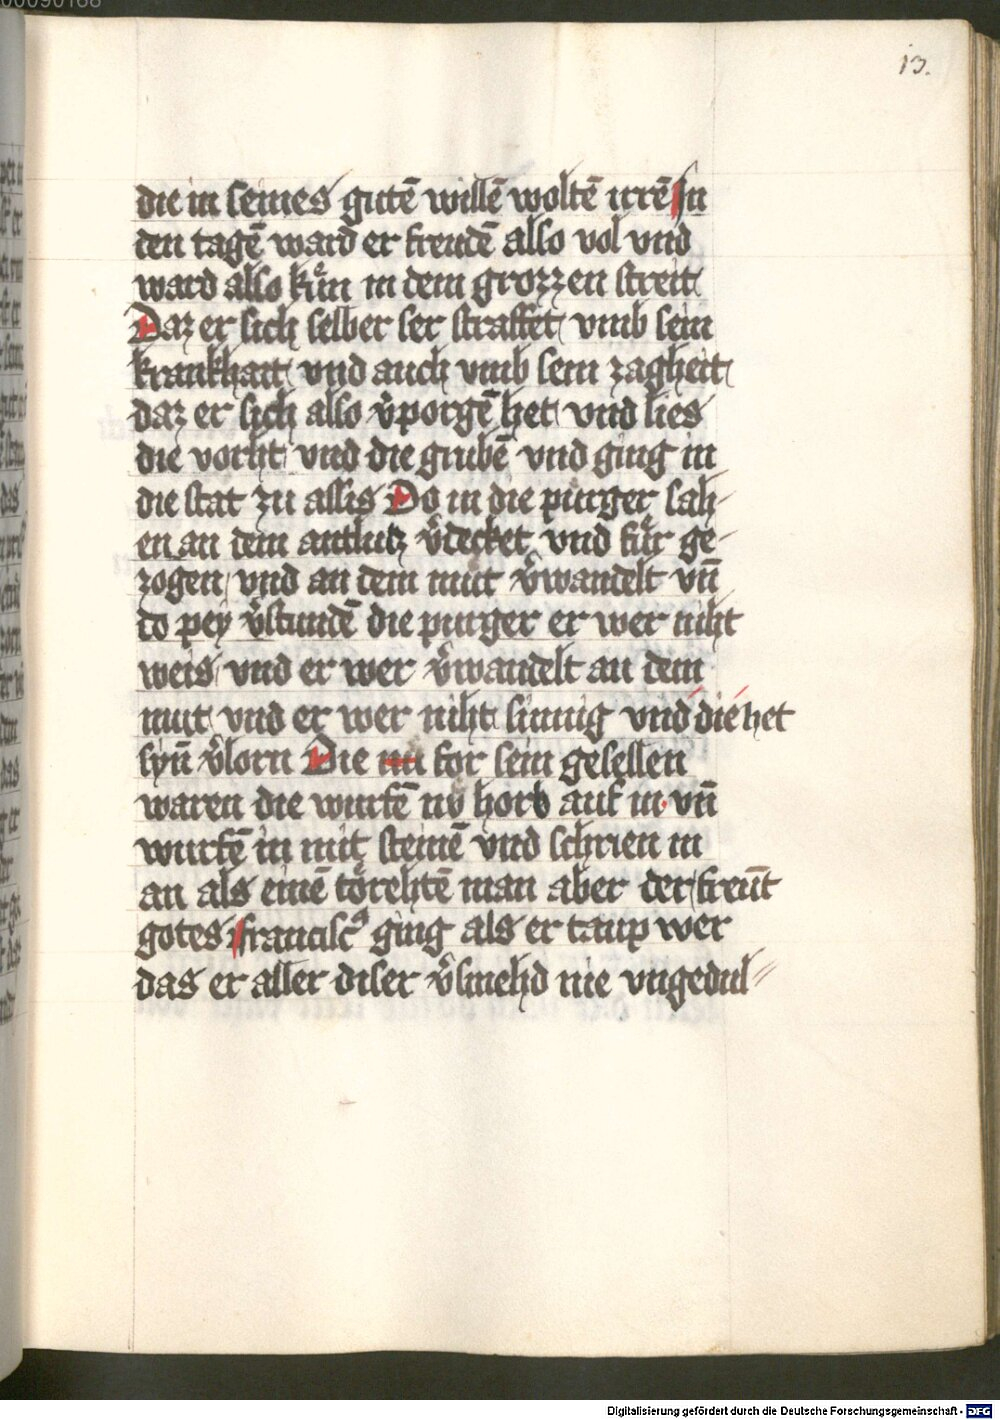 13.
die in seines gutē willē woltē irrē In
den tagē ward er freudē also vol vnd
ward also kuͤn in dem grozzen streit
Daz er sich selber ser straffet vmb sein
krankhait vnd auch vmb sein zagheit
daz er sich also v̾porgē het vnd lies
die vorht vnd die grubē vnd ging in
die stat zu assis Do in die purger sah-
en an dem antlutz v̾decket vnd fuͤr ge-
zogen vnd an dem mut v̾wandelt vn̄
do pey v̾stundē die purger er wer niht
weis vnd er wer v̾wandelt an dem
mut vnd er wer niht sinnig vnd die het
syn̄ v̾lorn Die for sein gesellen
waren die wurfē horb auf in vn̄
wurfē in mit steinē vnd schrien in
an als einē toͤrehtē man aber der freūt
gotes francisc⁹ ging als er taup wer
das er aller diser v̾smehd nie vngedul-
Digitalisierung gefördert durch die Deutsche Forschungsgemeinschaft - DFG